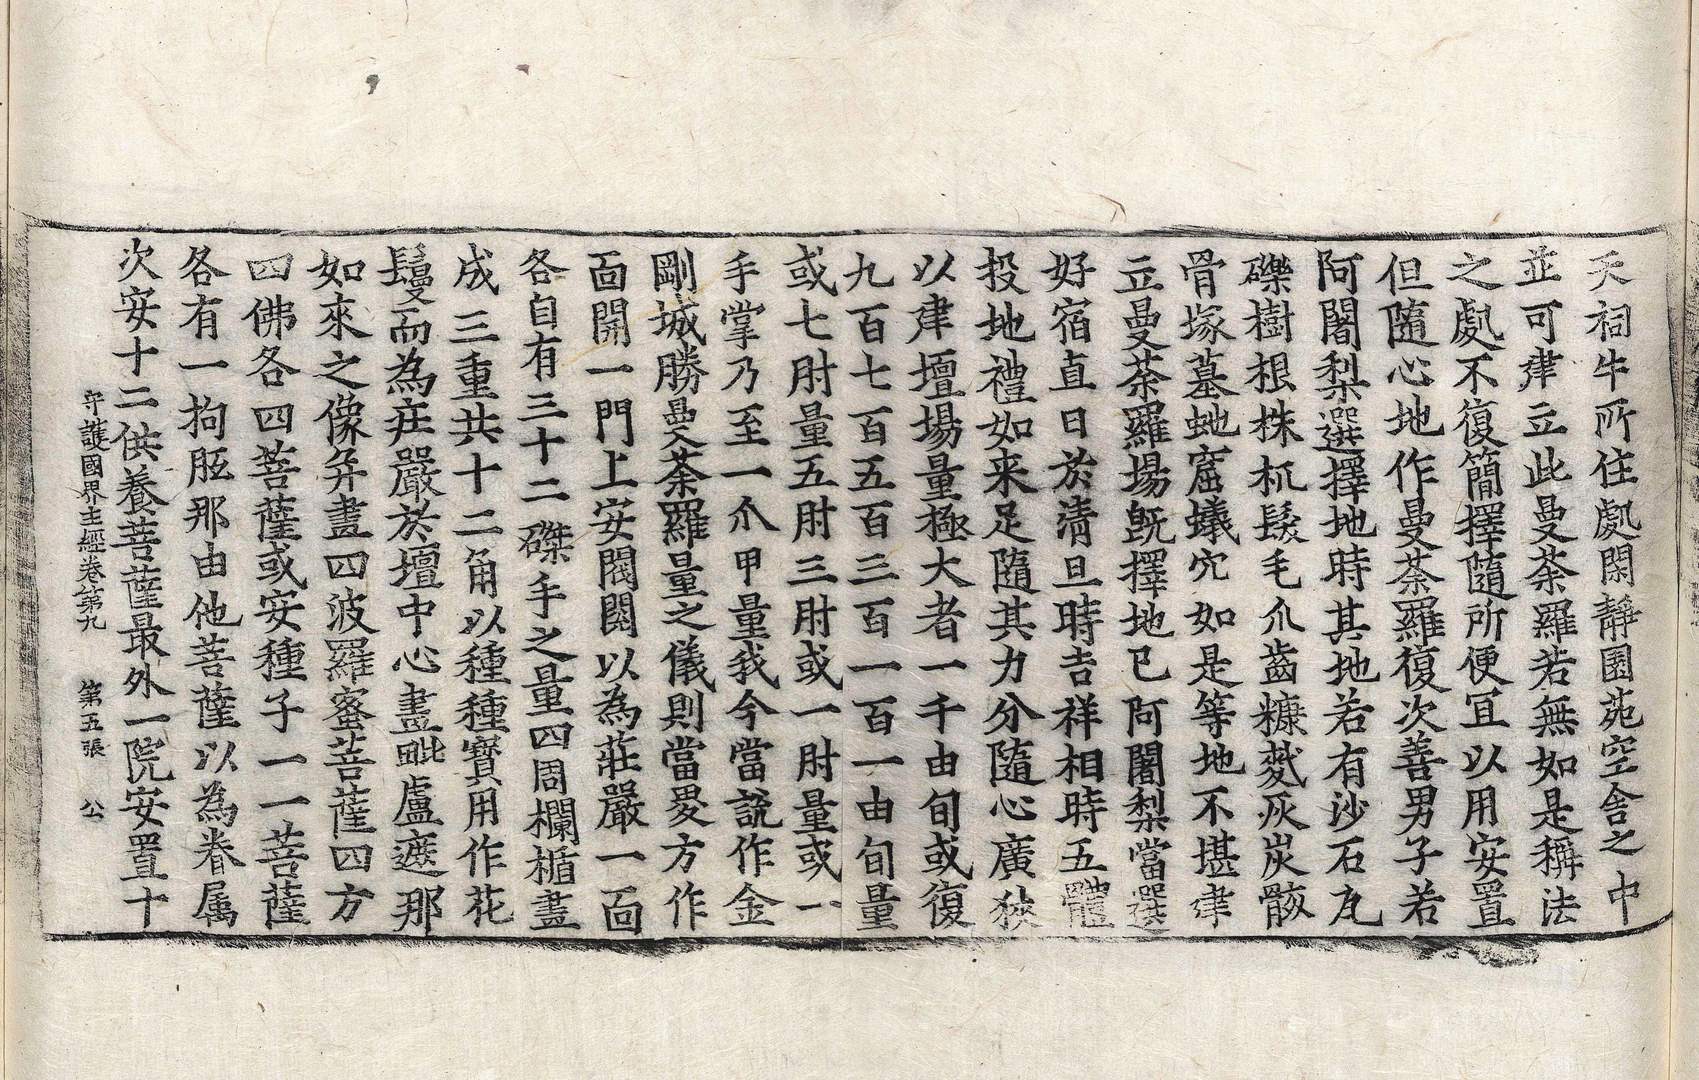 天祠牛所住處閑靜園苑空舍之中
並可建立此曼荼羅若無如是稱法
之處不復簡擇隨所便宜以用安置
但隨心地作曼荼羅復次善男子若
阿闍梨選擇地時其地若有沙石瓦
礫樹根株杌髮毛爪齒糠麩灰炭骸
骨塚墓虵窟蟻穴如是等地不堪建
立曼荼羅場既擇地已阿闍梨當選
好宿直日於清旦時吉祥相時五體
投地禮如来足隨其力分隨心廣狹
以建壇場量極大者一千由旬或復
九百七百五百三百一百一由旬量
或七肘量五肘三肘或一肘量或一
手掌乃至一爪甲量我今當說作金
剛城勝曼荼羅量之儀則當畟方作
面開一門上安閣閣以為莊嚴一面
各自有三十二磔手之量四周欄楯畫
成三重共十二角以種種寶用作花
鬘而為庄嚴於壇中心畫毗盧遮那
如來之像并畫四波羅蜜菩薩四方
四佛各四菩薩或安種子一一菩薩
各有一拘胝那由他菩薩以為眷属
次安十二供養菩薩最外一院安置十
守護國界主經卷第九 第五張 公